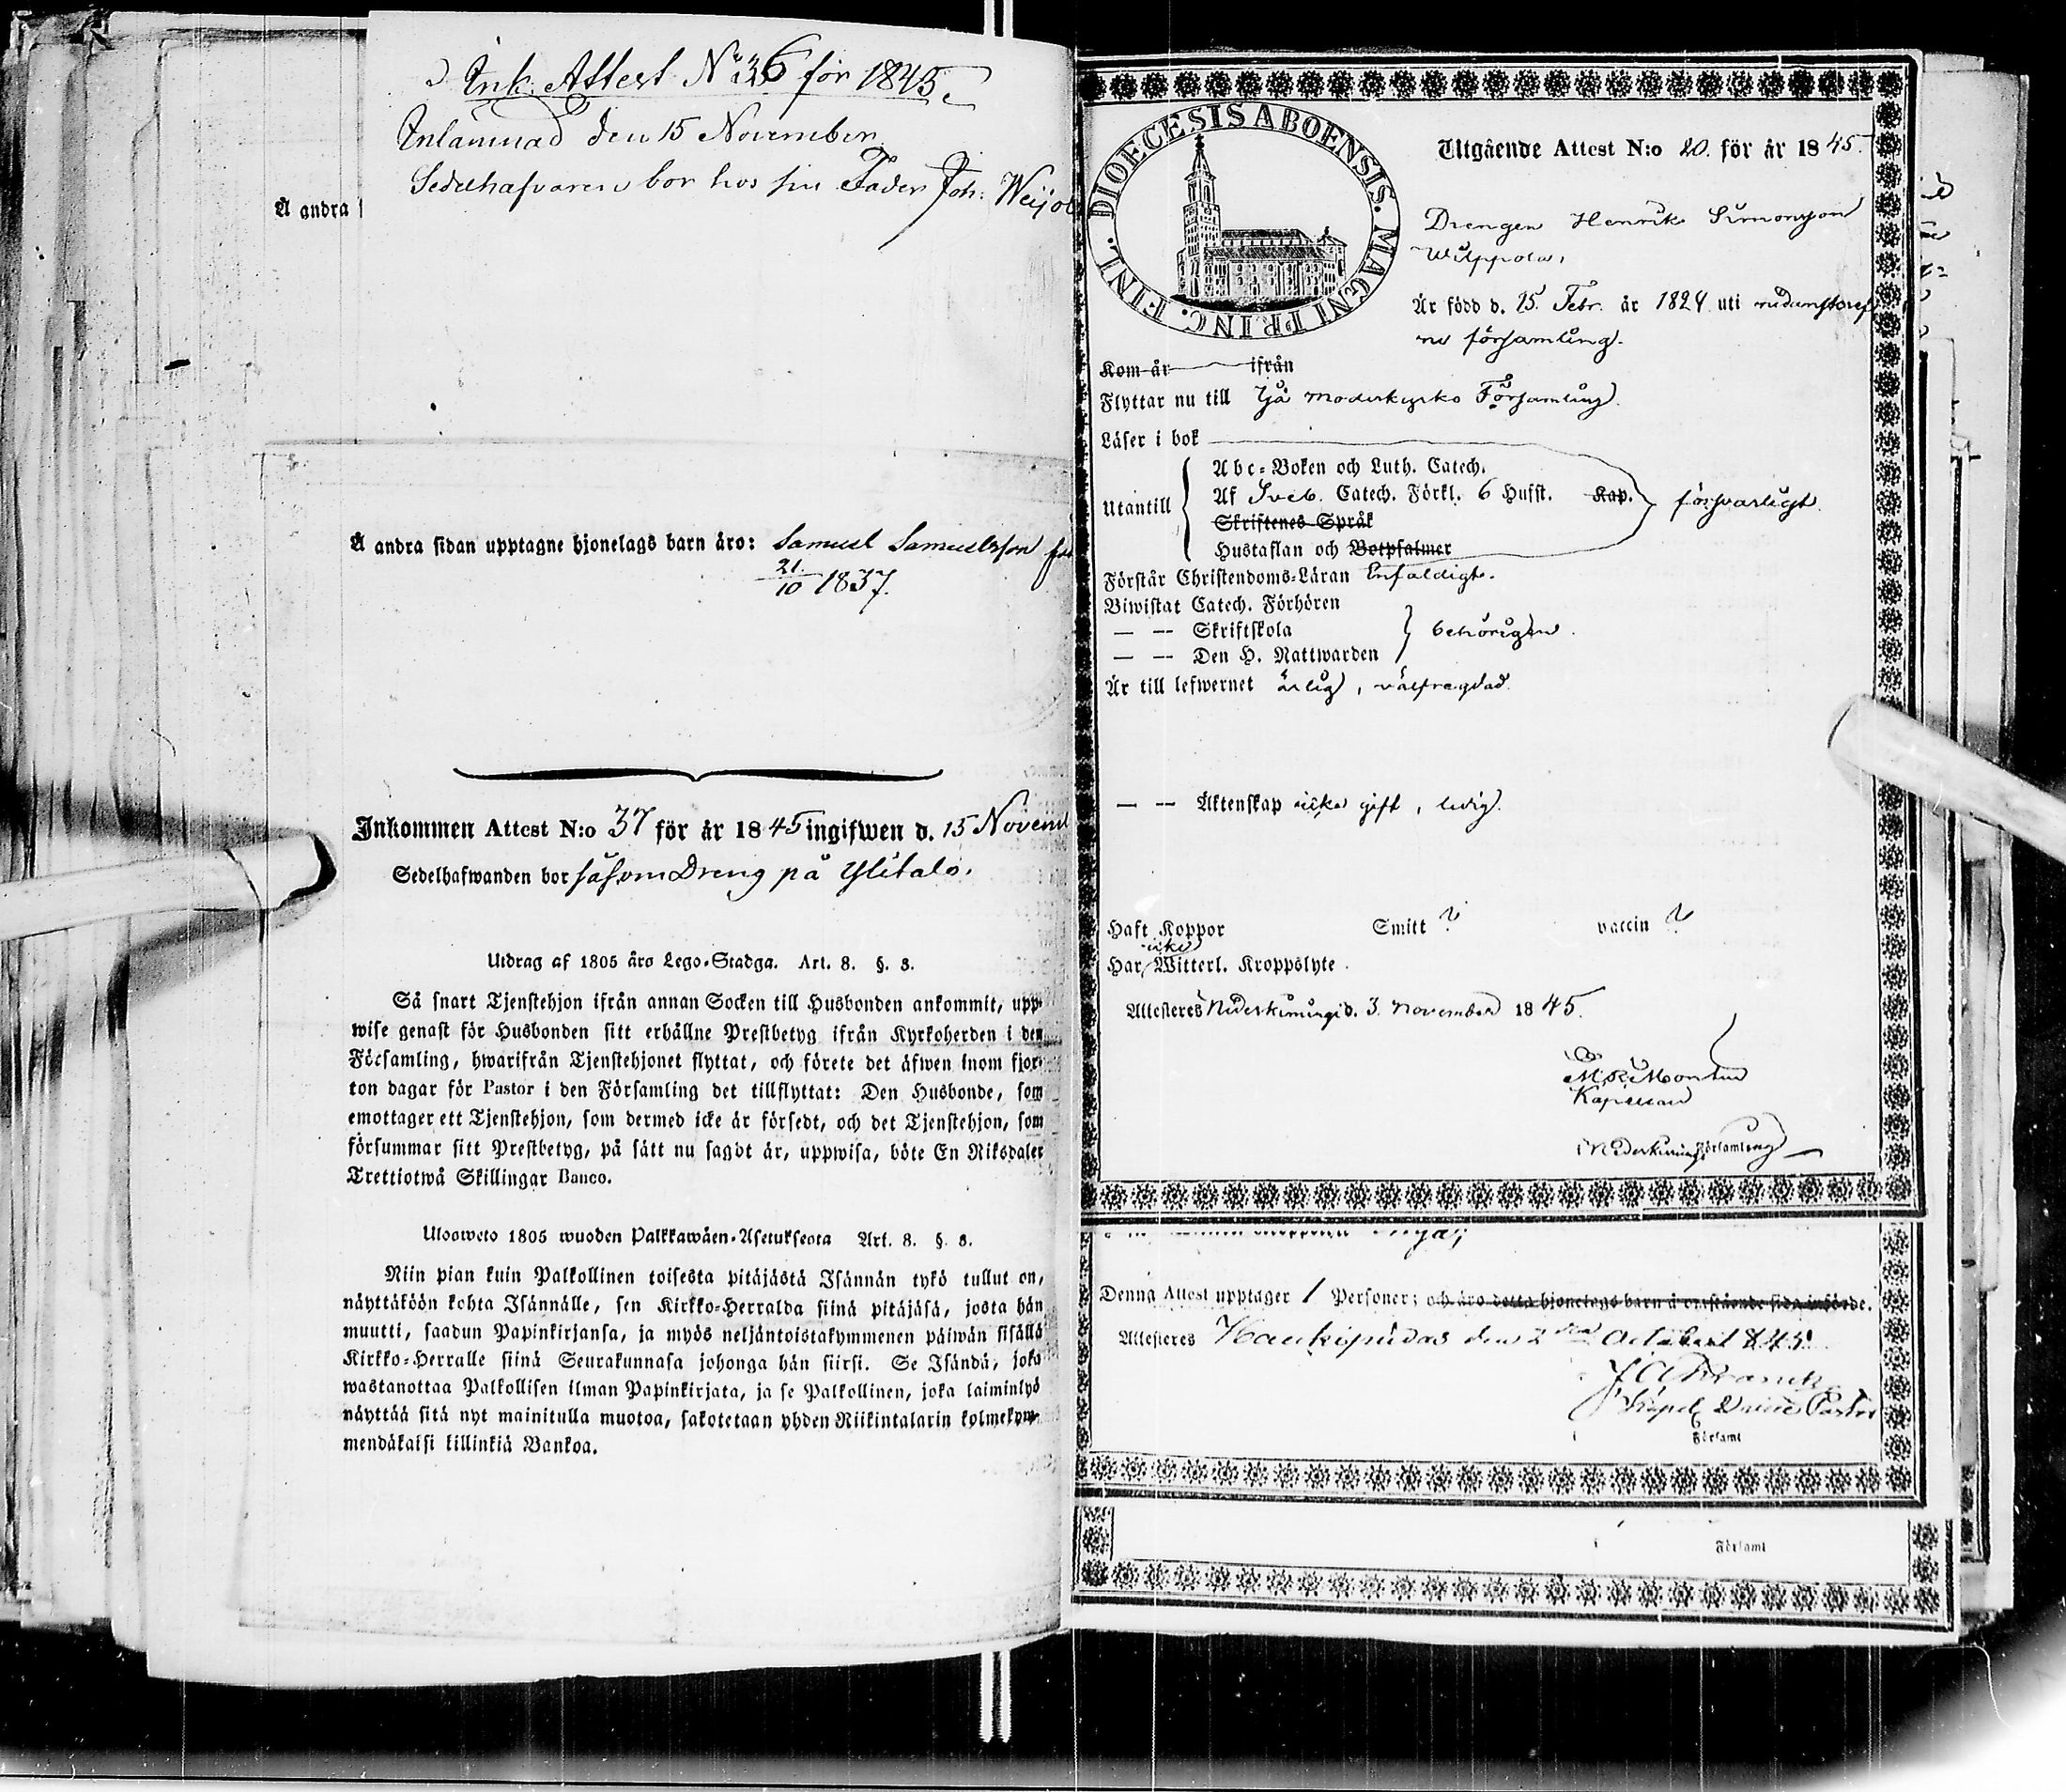 Ink. Attest No 36 för 1845.
Inlämnad den 15 November
Sedelhafvaren bor hos sin Fader Joh:
Å andra
Å andra sidan upptagne hjonelags barn äro: Samuel Samuelsson
21/10 1837.
Inkommen Attest N:o 37 för år 1845 ingifwen d. 15 Novem
Sedelhafwanden bor såsom Dreng på Ylitalo.
Utdrag af 1805 års Lego-Stadga. Art. 8. §. 3.
Så snart Tjenstehjon ifrån annan Socken till Husbonden ankommit, upp-
wise genast för Husbonden sitt erhållne Prestbetyg ifrån Kyrkoherden i den
Församling, hwarifrån Tjenstehjonet flyttat, och förete det äfwen inom fjor-
ton dagar för Pastor i den Församling det tillflyttat: Den Husbonde, som
emottager ett Tjenstehjon, som dermed icke är försedt, och det Tjenstehjon, som
försummar sitt Prestbetyg, på sätt nu sagdt är, uppwisa, böte En Riksdaler
Trettiotwå Skillingar Banco.
Ulosweto 1805 wuoden Palkkawäen-Asetuksesta Art. 8. §. 3.
Niin pian kuin Palkollinen toisesta pitäjästä Isännän tykö tullut on,
näyttäköön kohta Isännälle, sen Kirkko-Herralda siinä pitäjäsä, josta hän
muutti, saadun Papinkirjansa, ja myös neljäntoistakymmenen päiwän sisällä
Kirkko-Herralle siinä Seurakunnasa johonga hän siirsi. Se Isändä, joka
wastanottaa Palkollisen ilman Papinkirjata, ja se Palkollinen, joka laiminlyö
näyttää sitä nyt mainitulla muotoa, sakotetaan yhden Riikintalarin kolmekym-
mendäkaisi killinkiä Bankoa.
DIOECESIS ABOENSIS. MAGNI PRINC. FINL.
Utgående Attest N:o 20. för år 1845.
Drengen Henrik Simonsson
Wilppola,
Är född d. 15. Febr. år 1824 uti nedanskref
ne församling.
Kom år ifrån
Flyttar nu till Ijå moderkyrko Församling.
Läser i bok
Utantill
Abc-Boken och Luth. Catech.
Af Sveb. Catech. Förkl. 6 Hufst. Kap.
Skriftenes Språk
Hustaflan och Botpsalmer
försvarligt.
Förstår Christendoms-Läran Enfaldigt.
Biwistat Catech. Förhören
— — Skriftskola
— — Den H. Nattwarden
behörigen.
Är till lefwernet ärlig, välfrägdad.
— — Äktenskap icke gift, ledig.
Haft Koppor Smitt ? vaccin ?
icke
Har Witterl. Kroppslyte.
Attesteres Nederkimingi d. 3. November 1845.
Kapellan
i Nederkimingi Församling
Denna Attest upptager 1 Personer; och äro detta hjonelags barn å omstående sida införde.
Attesteres Haukipudas den 2 October 1845.
Församl
Församl